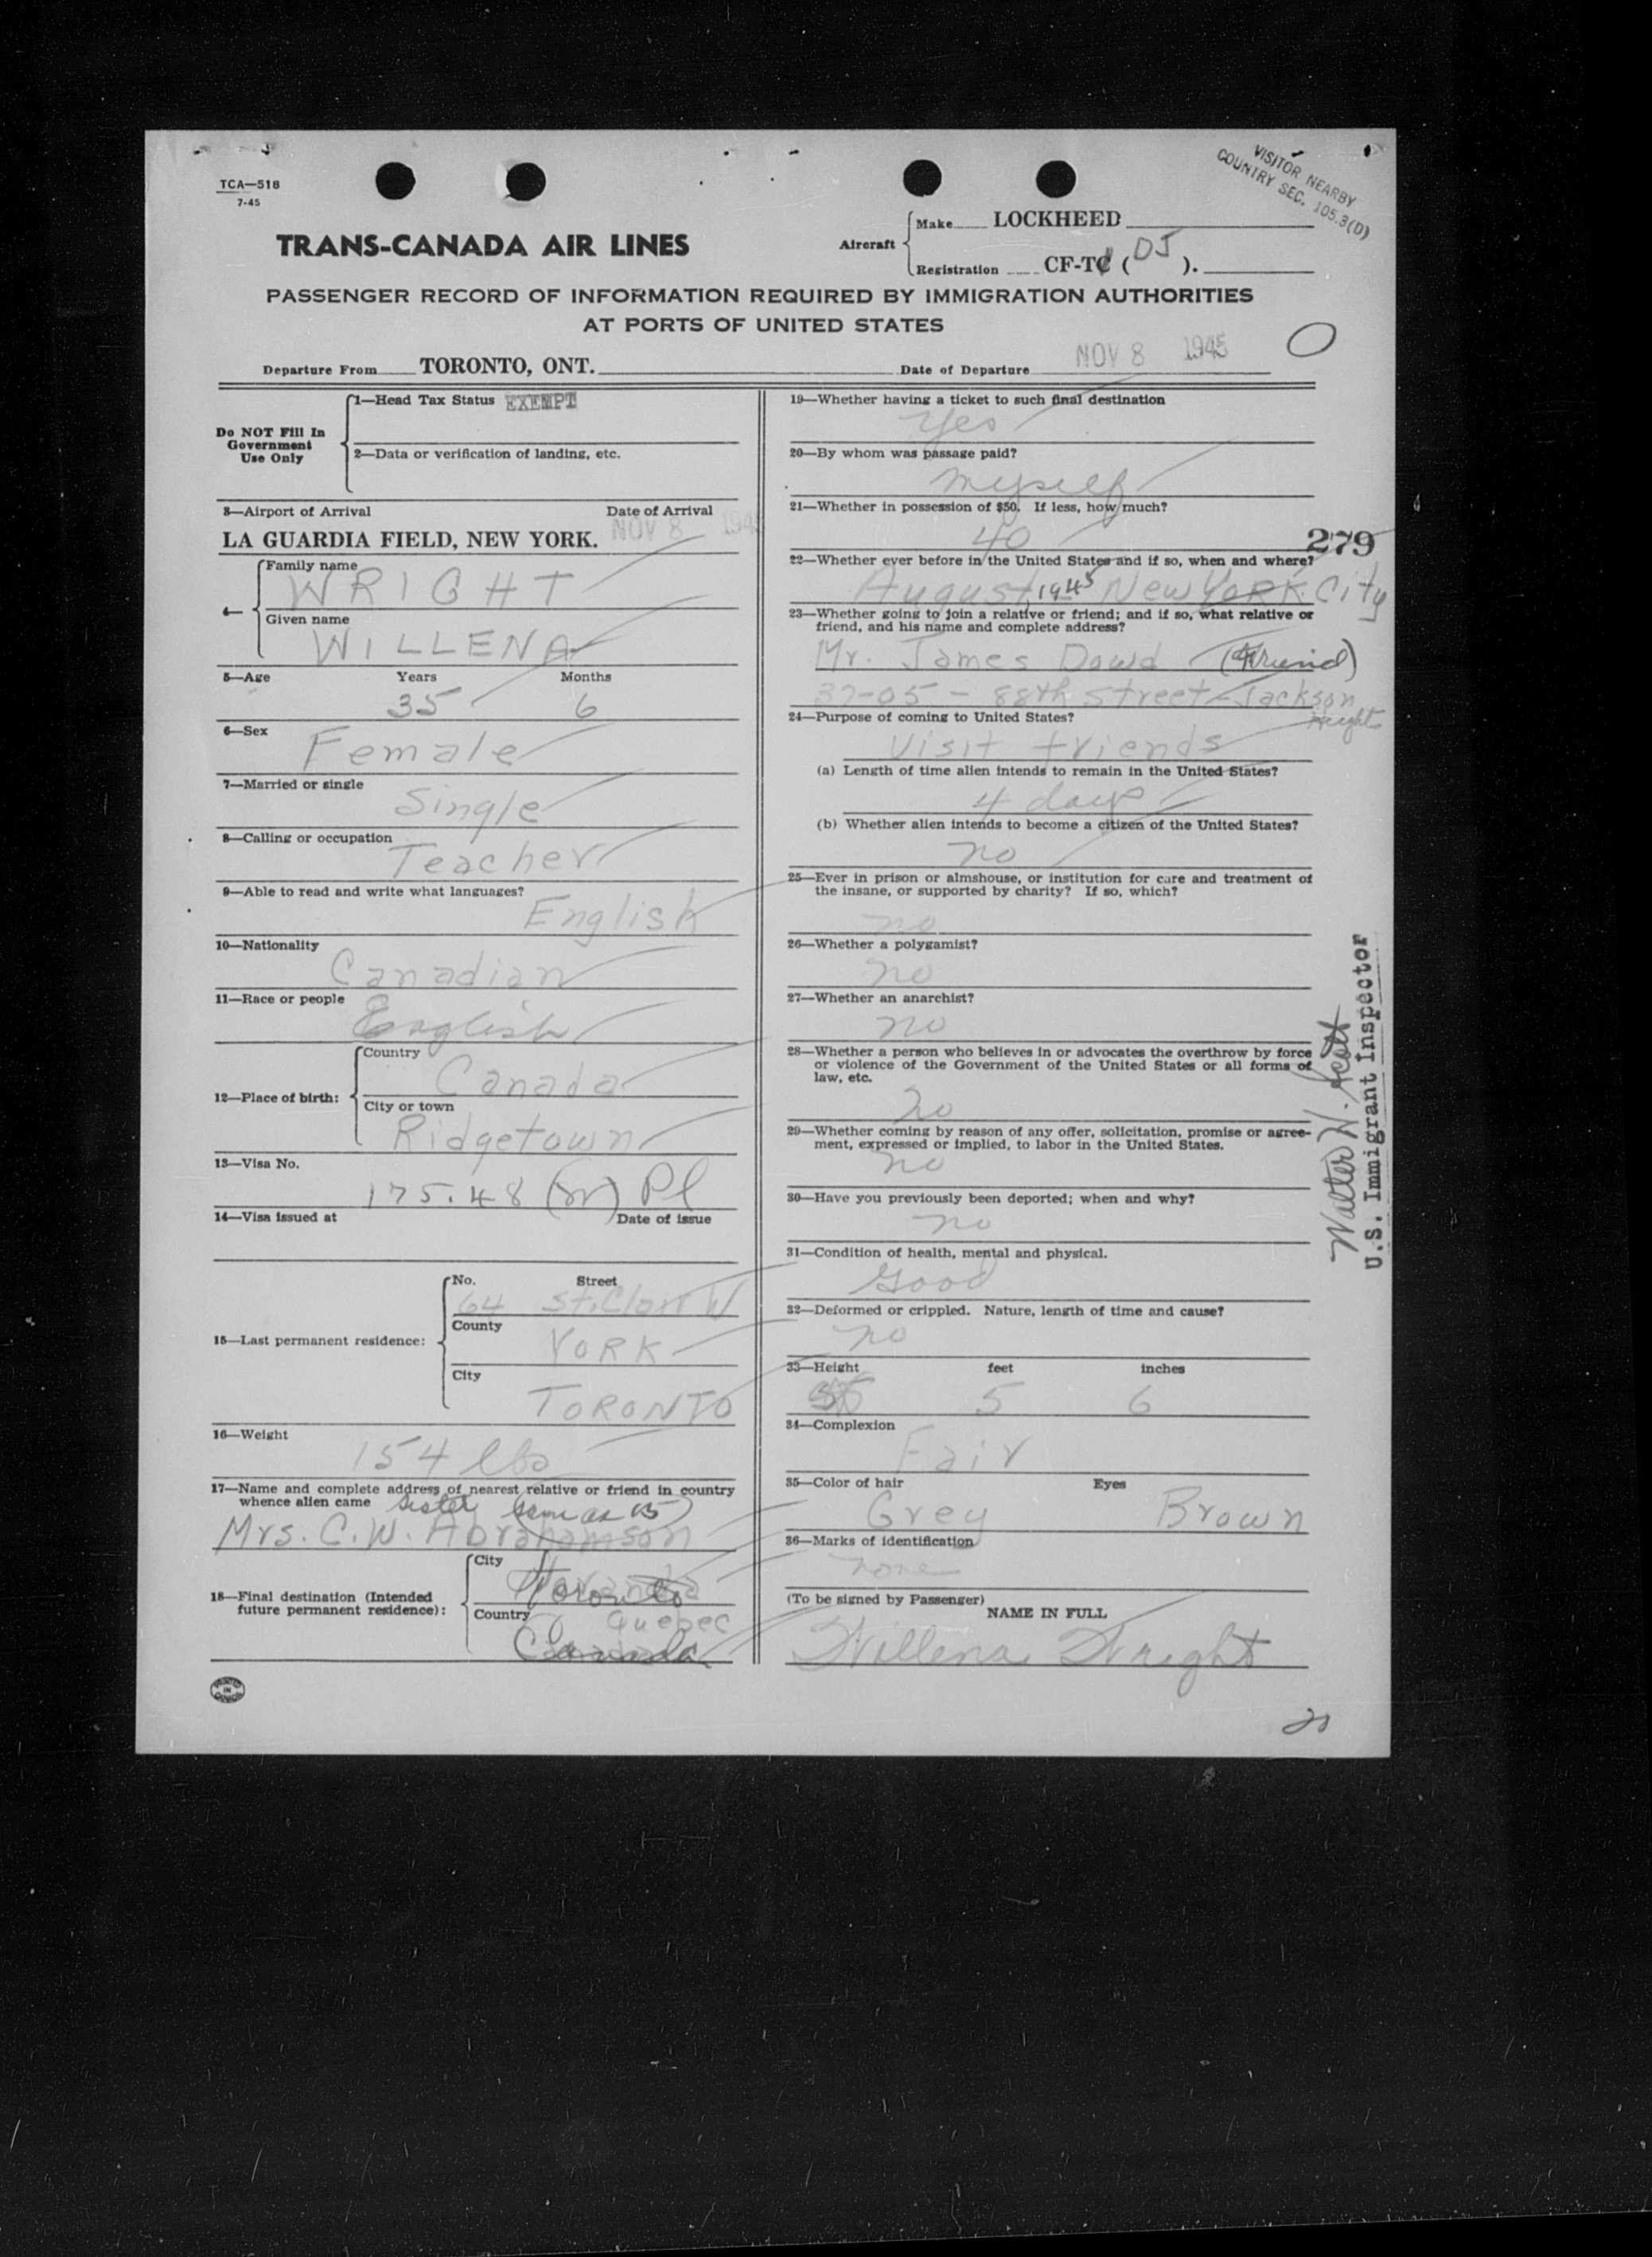 TCA—518
7-45
VISITOR NEARBY
COUNTRY SEC. 105.3(D)
TRANS-CANADA AIR LINES
Aircraft
Make LOCKHEED
Registration CF-TC (DJ).
PASSENGER RECORD OF INFORMATION REQUIRED BY IMMIGRATION AUTHORITIES
AT PORTS OF UNITED STATES
Departure From TORONTO, ONT.
Date of Departure NOV 8 1945
Do NOT Fill In
Government
Use Only
1—Head Tax Status EXEMPT
2—Data or verification of landing, etc.
3—Airport of Arrival Date of Arrival
LA GUARDIA FIELD, NEW YORK. NOV 8 194
4— Family name
WRIGHT
Given name
WILLENA
5—Age Years Months
35 6
6—Sex
Female
7—Married or single
Single
8—Calling or occupation
Teacher
9—Able to read and write what languages?
English
10—Nationality
Canadian
11—Race or people
English
12—Place of birth:
Country
Canada
City or town
Ridgetown
13—Visa No.
175.48 Pl
14—Visa issued at Date of issue
15—Last permanent residence:
No. Street
64 St. Clair W
County
YORK
City
TORONTO
16—Weight
154 lbs
17—Name and complete address of nearest relative or friend in country
whence alien came Sister (same as 15)
Mrs. C.W. Abrahamson
18—Final destination (Intended
future permanent residence):
City
Toronto
Country Quebec
Canada
PRINTED
IN
CANADA
19—Whether having a ticket to such final destination
Yes
20—By whom was passage paid?
myself
21—Whether in possession of $50. If less, how much?
40
279
22—Whether ever before in the United States and if so, when and where?
August 1945 New YORK City
23—Whether going to join a relative or friend; and if so, what relative or
friend, and his name and complete address?
Mr. James Dowd (Friend)
37-05 - 88th Street - Jackson
Height
24—Purpose of coming to United States?
Visit friends
(a) Length of time alien intends to remain in the United States?
4 days
(b) Whether alien intends to become a citizen of the United States?
no
25—Ever in prison or almshouse, or institution for care and treatment of
the insane, or supported by charity? If so, which?
no
26—Whether a polygamist?
no
27—Whether an anarchist?
no
28—Whether a person who believes in or advocates the overthrow by force
or violence of the Government of the United States or all forms of
law, etc.
no
29—Whether coming by reason of any offer, solicitation, promise or agree-
ment, expressed or implied, to labor in the United States.
no
30—Have you previously been deported; when and why?
no
31—Condition of health, mental and physical.
Good
32—Deformed or crippled. Nature, length of time and cause?
no
33—Height feet inches
5 6
34—Complexion
Fair
35—Color of hair Eyes
Grey Brown
36—Marks of identification
none
(To be signed by Passenger)
NAME IN FULL
Willena Wright
Walter W. Scott
U.S. Immigrant Inspector